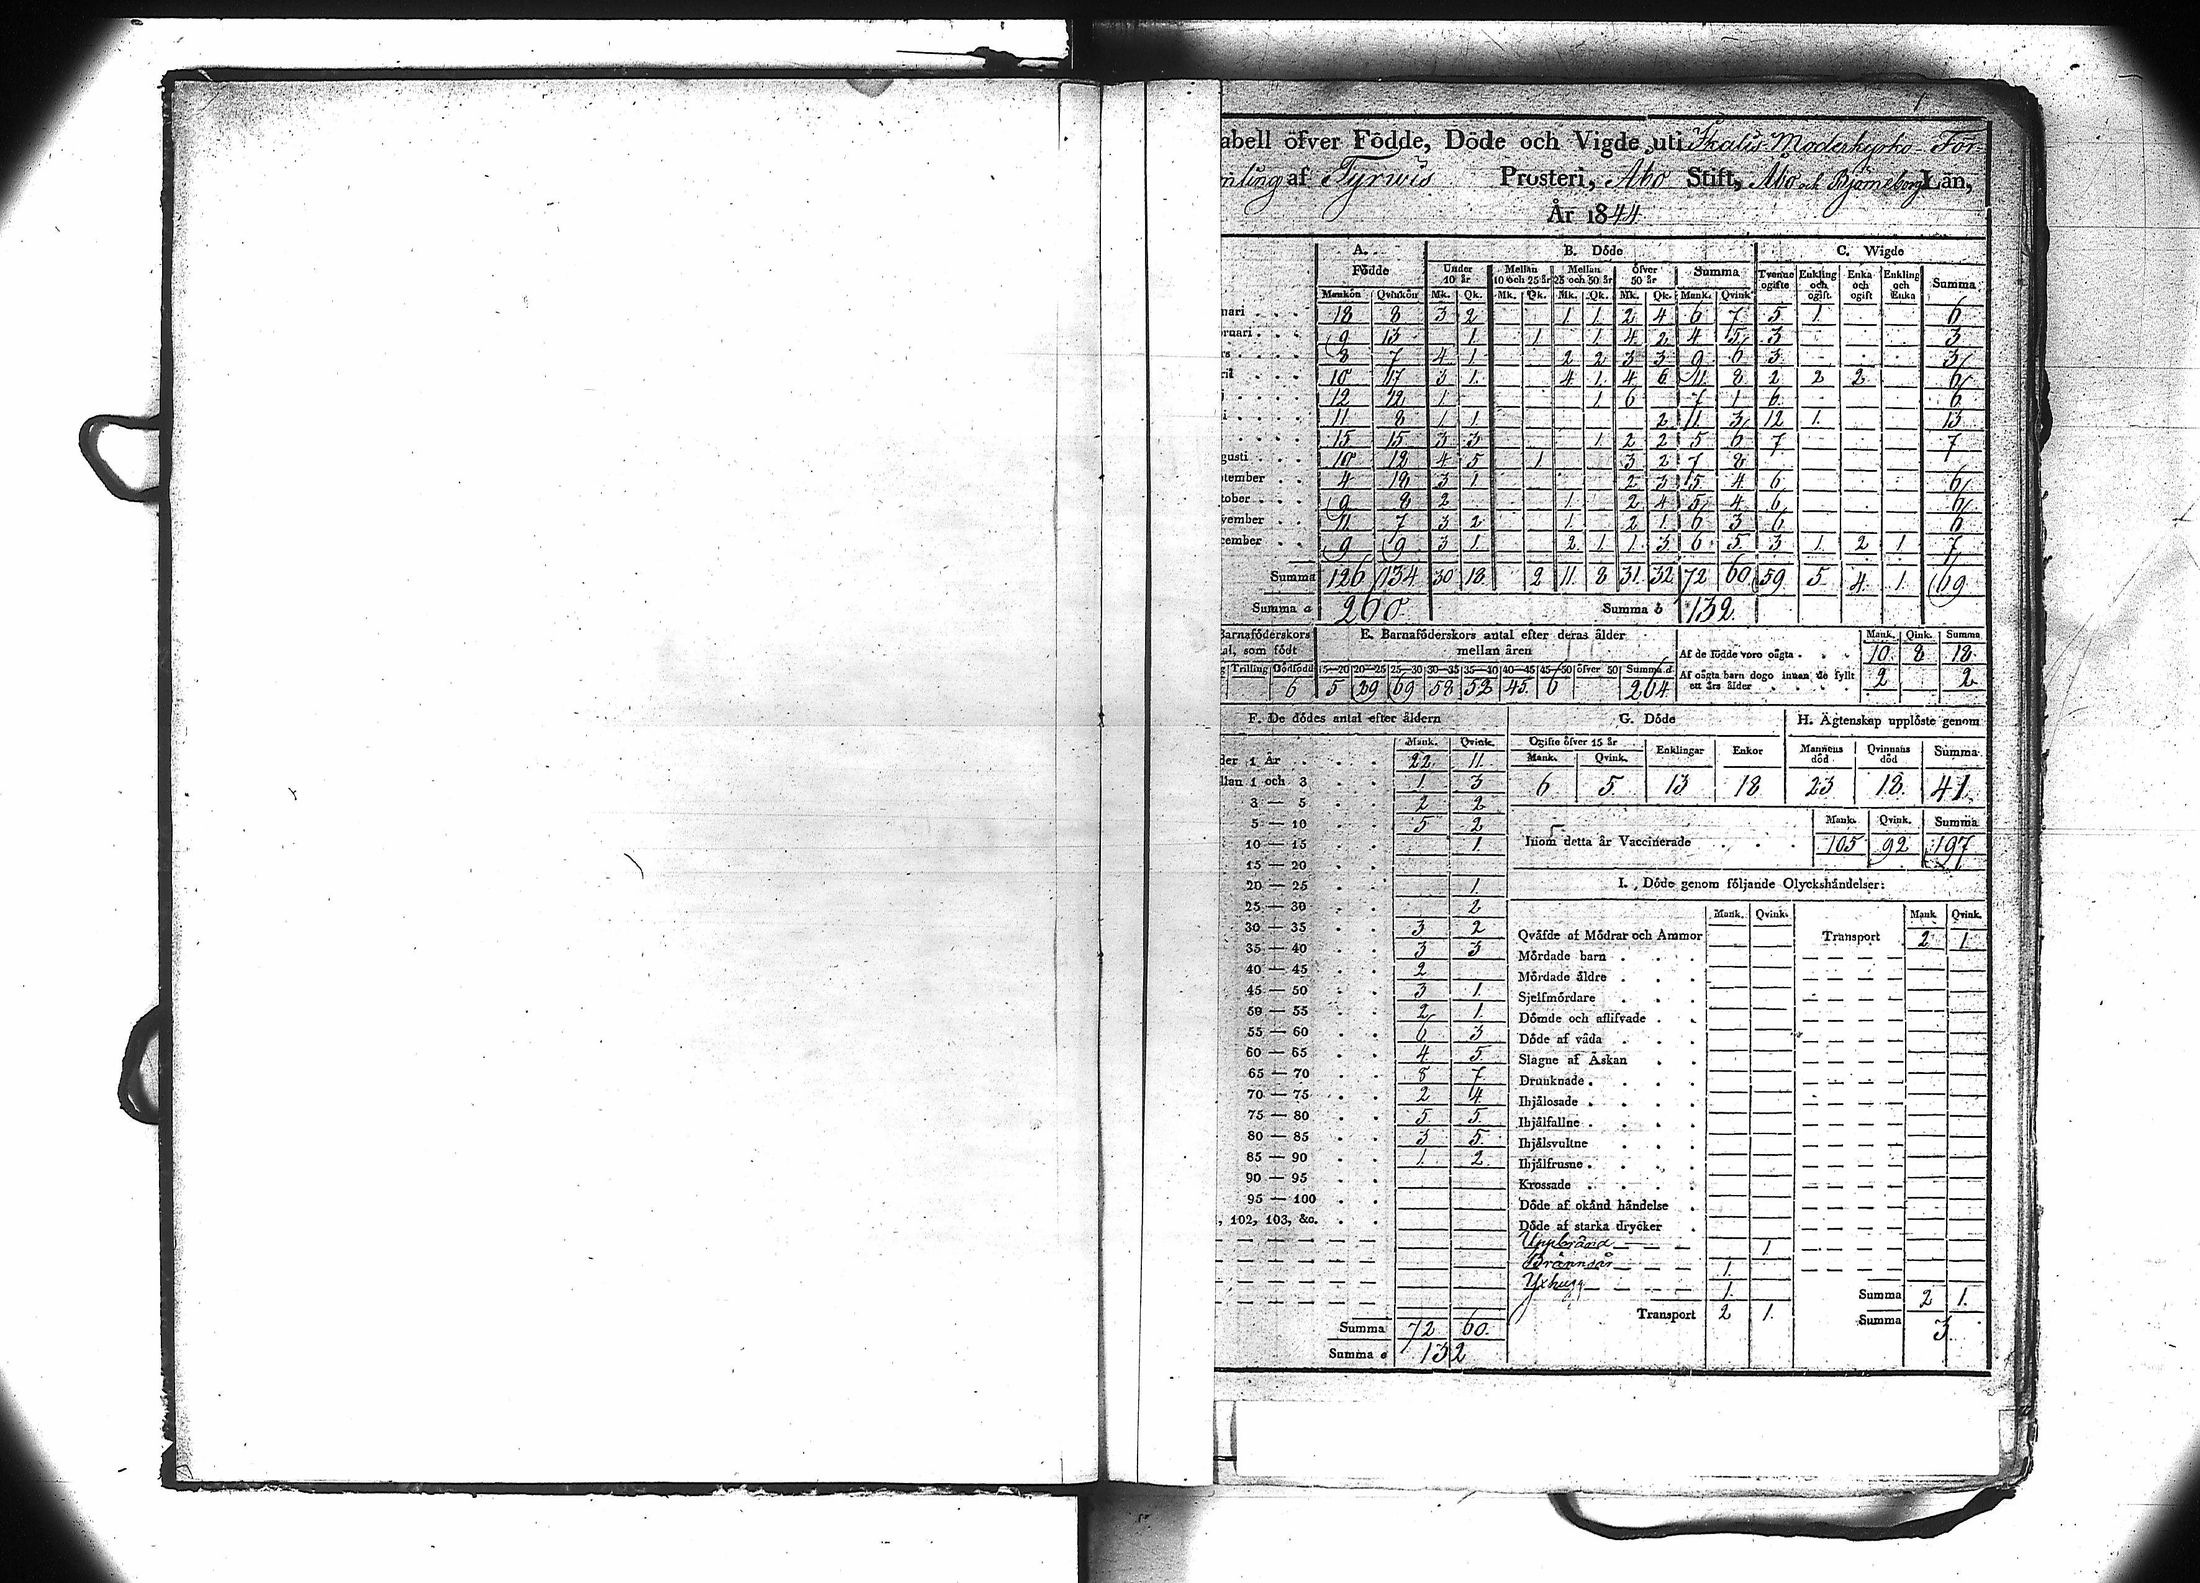 1
abell öfver Födde, Döde och Vigde uti Ikalis Moderkyrko-För-
mling af Tyrwis Prosteri, Åbo Stift, Åbo och Björneborgs Län,
År 1844
A. Födde B. Döde C. Wigde
Under 10 år Mellan 10 och 25 år Mellan 25 och 50 år Öfver 50 år Summa Tvenne ogifte Enkling och ogift Enka och ogift Enkling och Enka Summa
Mankön Qvinkön Mk. Qk. Mk. Qk. Mk. Qk. Mk. Qk. Mank. Qvink.
nari 18 8 3 2 1 1 2 4 6 7 5 1 6
bruari 9 13 1 1 1 4 2 4 5 3 3
rs 8 7 4 1 2 2 3 3 9 6 3 3
ril 10 17 3 1 4 1 4 6 11 8 2 2 2 6
12 12 1 1 6 7 1 6 6
i 11 8 1 1 2 11 3 12 1 13
15 15 3 3 1 2 2 5 6 7 7
gusti 10 12 4 5 1 3 2 7 8
tember 4 18 3 1 2 3 5 4 6 6
tober 9 8 2 1 2 4 5 4 6 6
vember 11 7 3 2 1 2 1 6 3 6 6
cember 9 9 3 1 2 1 1 3 6 5 3 1 2 1 7
Summa 126 134 30 18 2 11 8 31 32 72 60 59 5 4 1 69
Summa a 260 Summa b 132
Barnaföderskors
al, som födt
Trilling Dödfödd
6
E. Barnaföderskors antal efter deras ålder
mellan åren
15—20 20—25 25—30 30—35 35—40 40—45 45—50 öfver 50 Summa d
5 29 69 58 52 45 6 264
Mank. Qink. Summa
Af de födde voro oägta 10 8 18
Af oägta barn dogo innan de fyllt
ett års ålder 2 2
F. De dödes antal efter åldern
Mank. Qvink.
der 1 År 22 11
llan 1 och 3 1 3
3 — 5 2 2
5 — 10 5 2
10 — 15 1
15 — 20
20 — 25 1
25 — 30 2
30 — 35 3 2
35 — 40 3 3
40 — 45 2
45 — 50 3 1
50 — 55 2 1
55 — 60 6 3
60 — 65 4 5
65 — 70 8 7
70 — 75 2 4
75 — 80 5 5
80 — 85 3 5
85 — 90 1 2
90 — 95
95 — 100
, 102, 103, &c.
Summa 72 60
Summa e 132
G. Döde
Ogifte öfver 15 år Enklingar Enkor
Mank. Qvink.
6 5 13 18
H. Ägtenskap upplöste genom
Mannens död Qvinnans död Summa
23 18 41
Mank. Qvink. Summa
Inom detta år Vaccinerade 105 92 197
I. Döde genom följande Olyckshändelser:
Mank. Qvink. Mank. Qvink.
Qväfde af Mödrar och Ammor Transport 2 1
Mördade barn
Mördade äldre
Sjelfmördare
Dömde och aflifvade
Döde af våda
Slagne af Åskan
Drunknade
Ihjälosade
Ihjälfallne
Ihjälsvultne
Ihjälfrusne
Krossade
Döde af okänd händelse
Döde af starka drycker
Uppbränd 1
Brännsår 1
Yxhugg 1 Summa 2 1
Transport 2 1 Summa 3